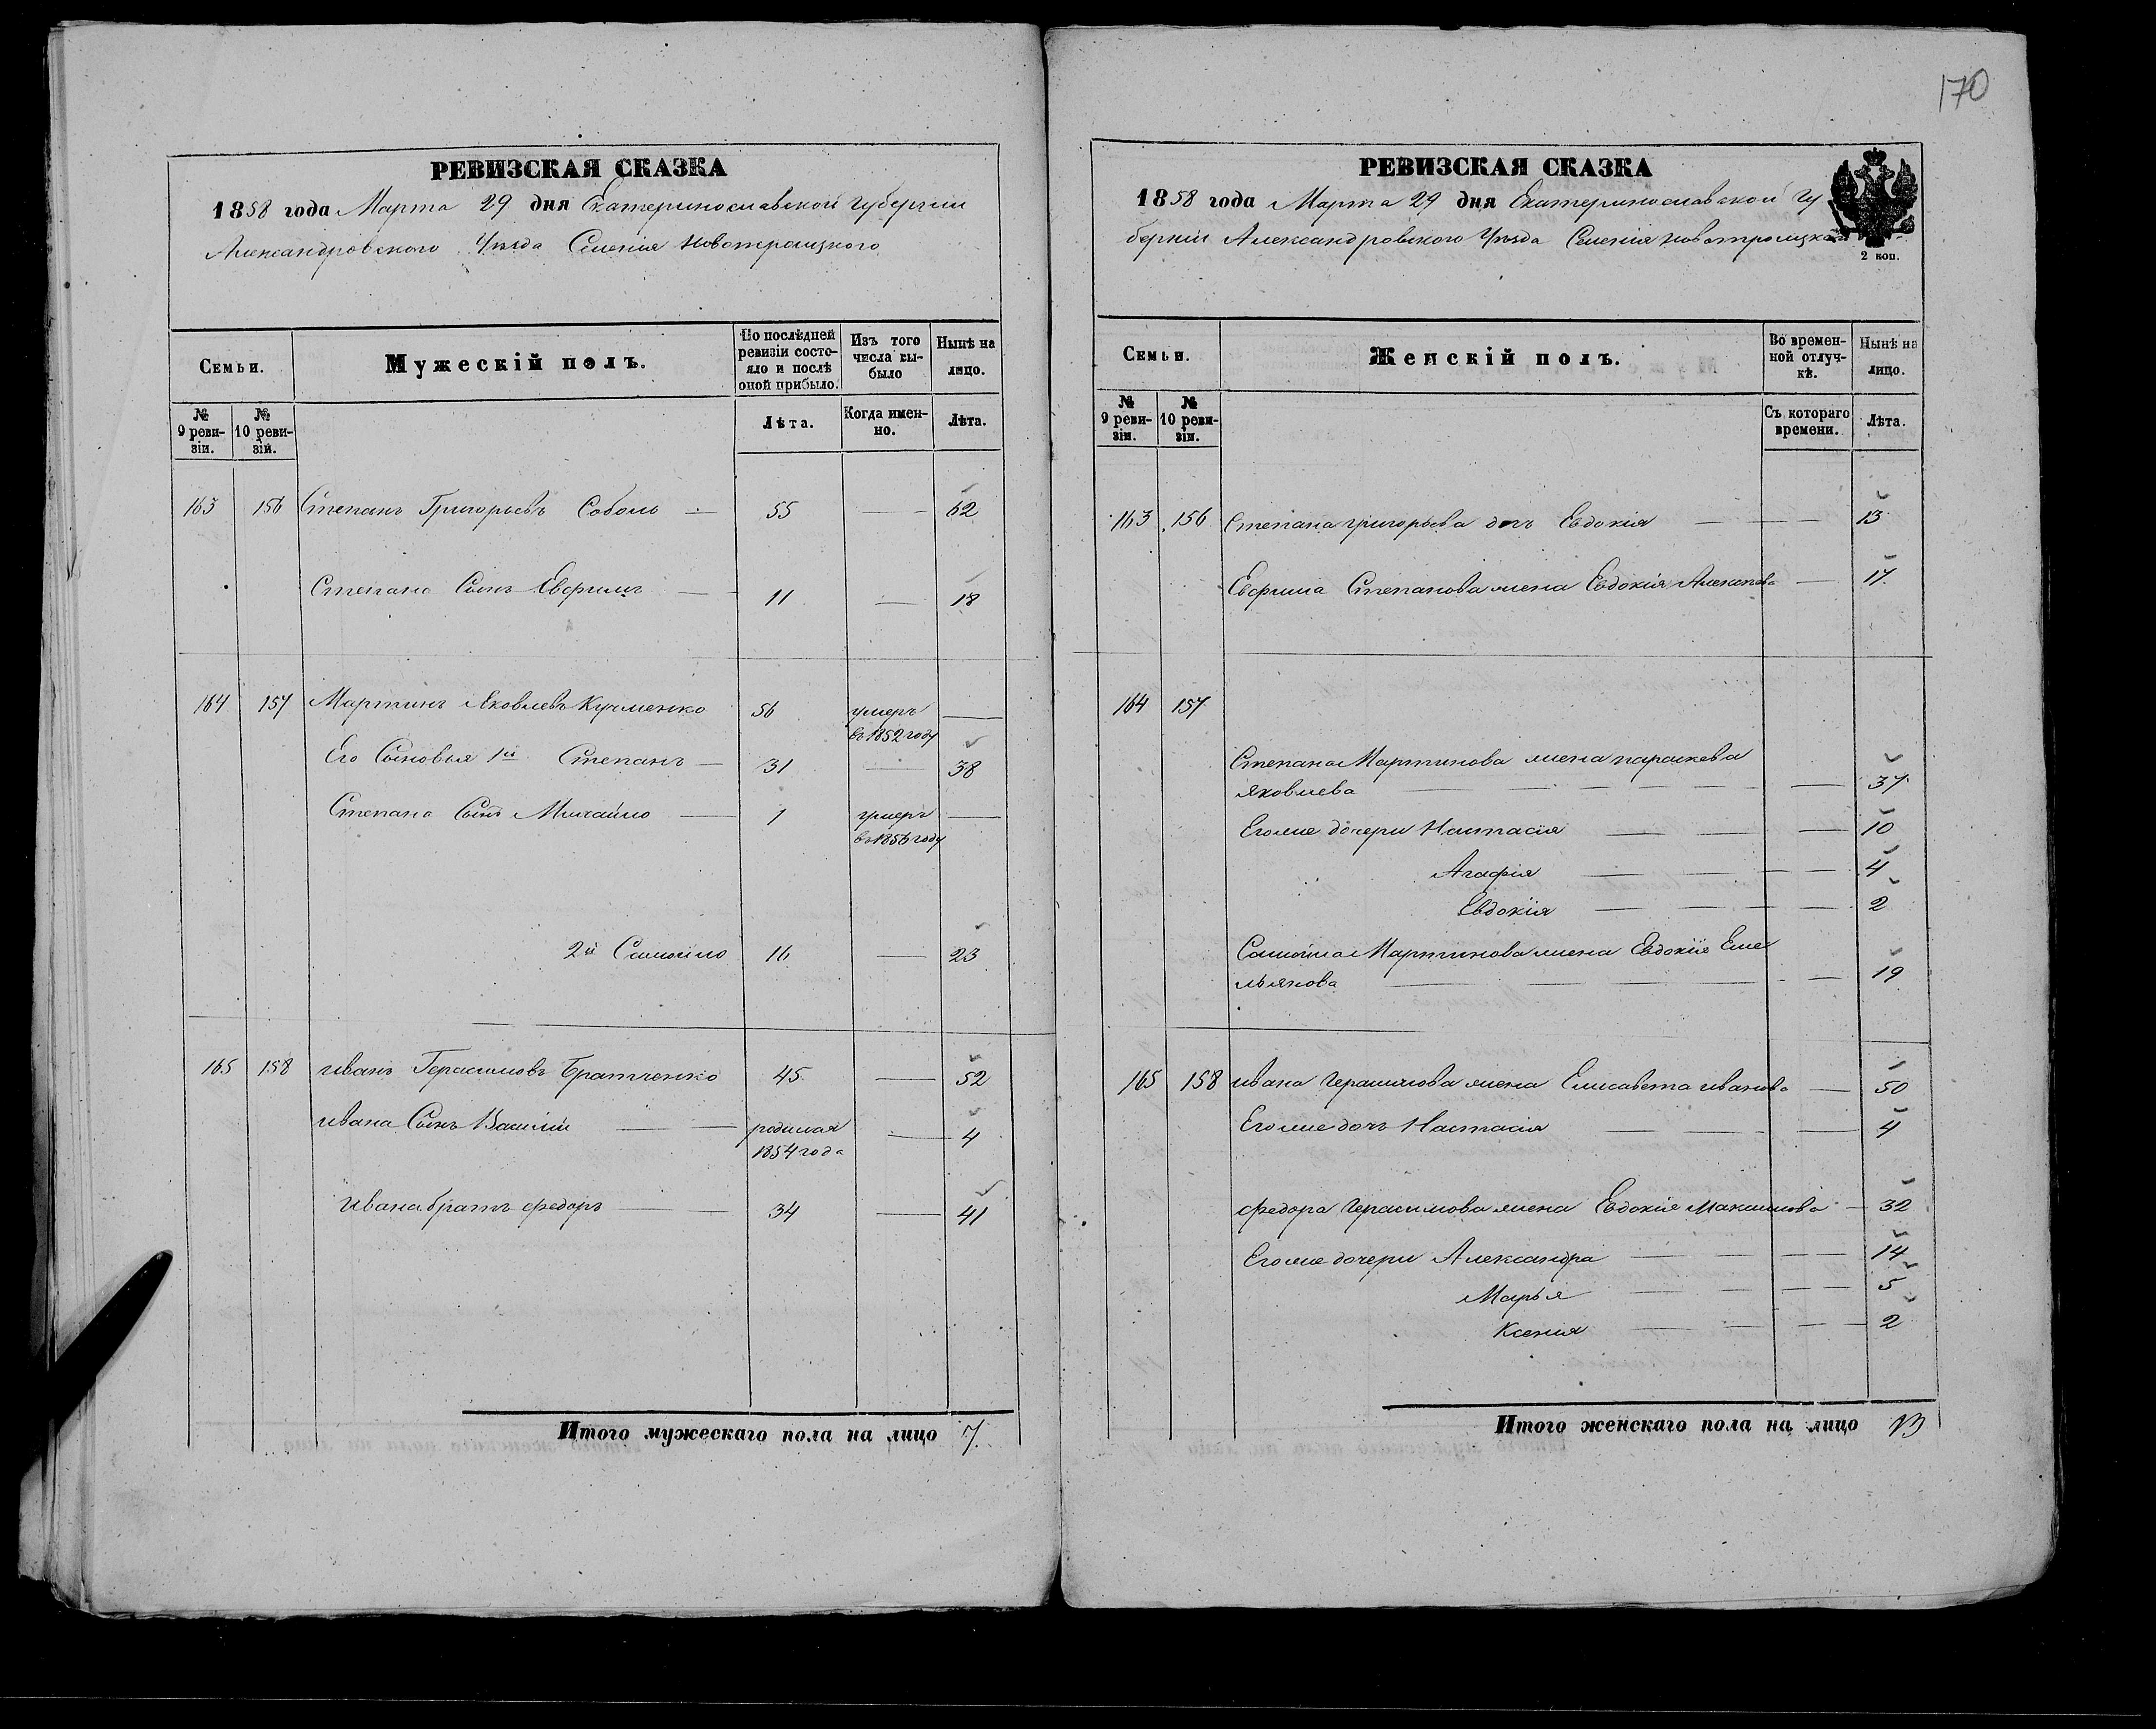 170
РЕВИЗСКАЯ СКАЗКА
1858 года Марта 29 дня Екатеринославской Губернии
Александровского Уезда Селения Новотроицкого
Семьи.
Мужескій полъ.
По послѣдней ревизіи состояло и послѣ оной прибыло.
Изъ того числа выбыло
Нынѣ на лицо.
№ 9 ревизіи.
№ 10 ревизій.
Лѣта.
Когда именно.
Лѣта.
163 156 Степанъ Григорьевъ Соболь — 55 — 62
Степана Сынъ Евфимъ — 11 — 18
164 157 Мартинъ Яковлевъ Кучменко 56 умеръ —
въ 1852 году
Его Сыновья 1й Степанъ — 31 — 38
Степана Сынъ Михайло — 1 умеръ —
въ 1856 году
2й Самойло 16 — 23
165 158 иванъ Герасимовъ Братченко 45 — 52
ивана Сынъ Василій — — родился — 4
1854 года
ивана братъ федоръ — — 34 — 41
Итого мужескаго пола на лицо 7.
РЕВИЗСКАЯ СКАЗКА
1858 года Марта 29 дня Екатеринославской Гу
берніи Александровского Уезда Селения новотроицкаго
2 коп.
Семьи.
Женскій полъ.
Во временной отлучкѣ.
Нынѣ на лицо.
№ 9 ревизіи.
№ 10 ревизіи.
Съ котораго времени.
Лѣта.
163 156 Степана григорьева доч Евдокія — — 13
Евфима Степанова жена Евдокія Алексеева — 17
164 157
Степана Мартинова жена параскева
Яковлева — — — — 37
Егоже дочери Настасія — — — 10
Агафія — — — 4
Евдокія — — — 2
Самойла Мартинова жена Евдокія Еме
льянова — — — — 19
165 158 ивана герасимова жена Елисавета иванова — 50
Егоже доч Настасія — — 4
федора герасимова жена Евдокія Максимова — 32
Егоже дочери Александра — — — 14
Марья — — — 5
Ксенія — — — 2
Итого женскаго пола на лицо 13